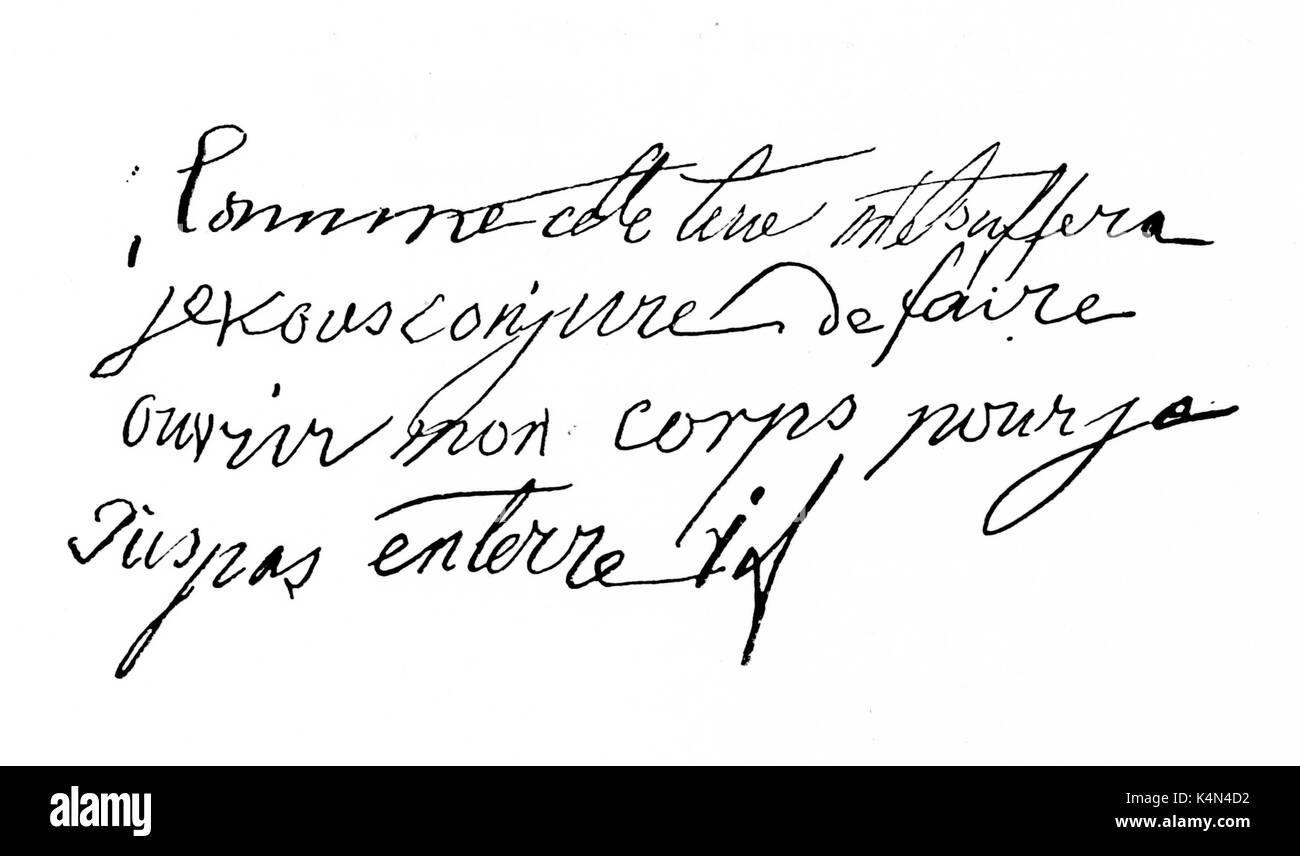 Comme cete terre m'étouffera
je vous conjure de faire
ouvrir mon corps pour je
suis pas enterré vif
alamy
Image ID: K4N4D2
www.alamy.com